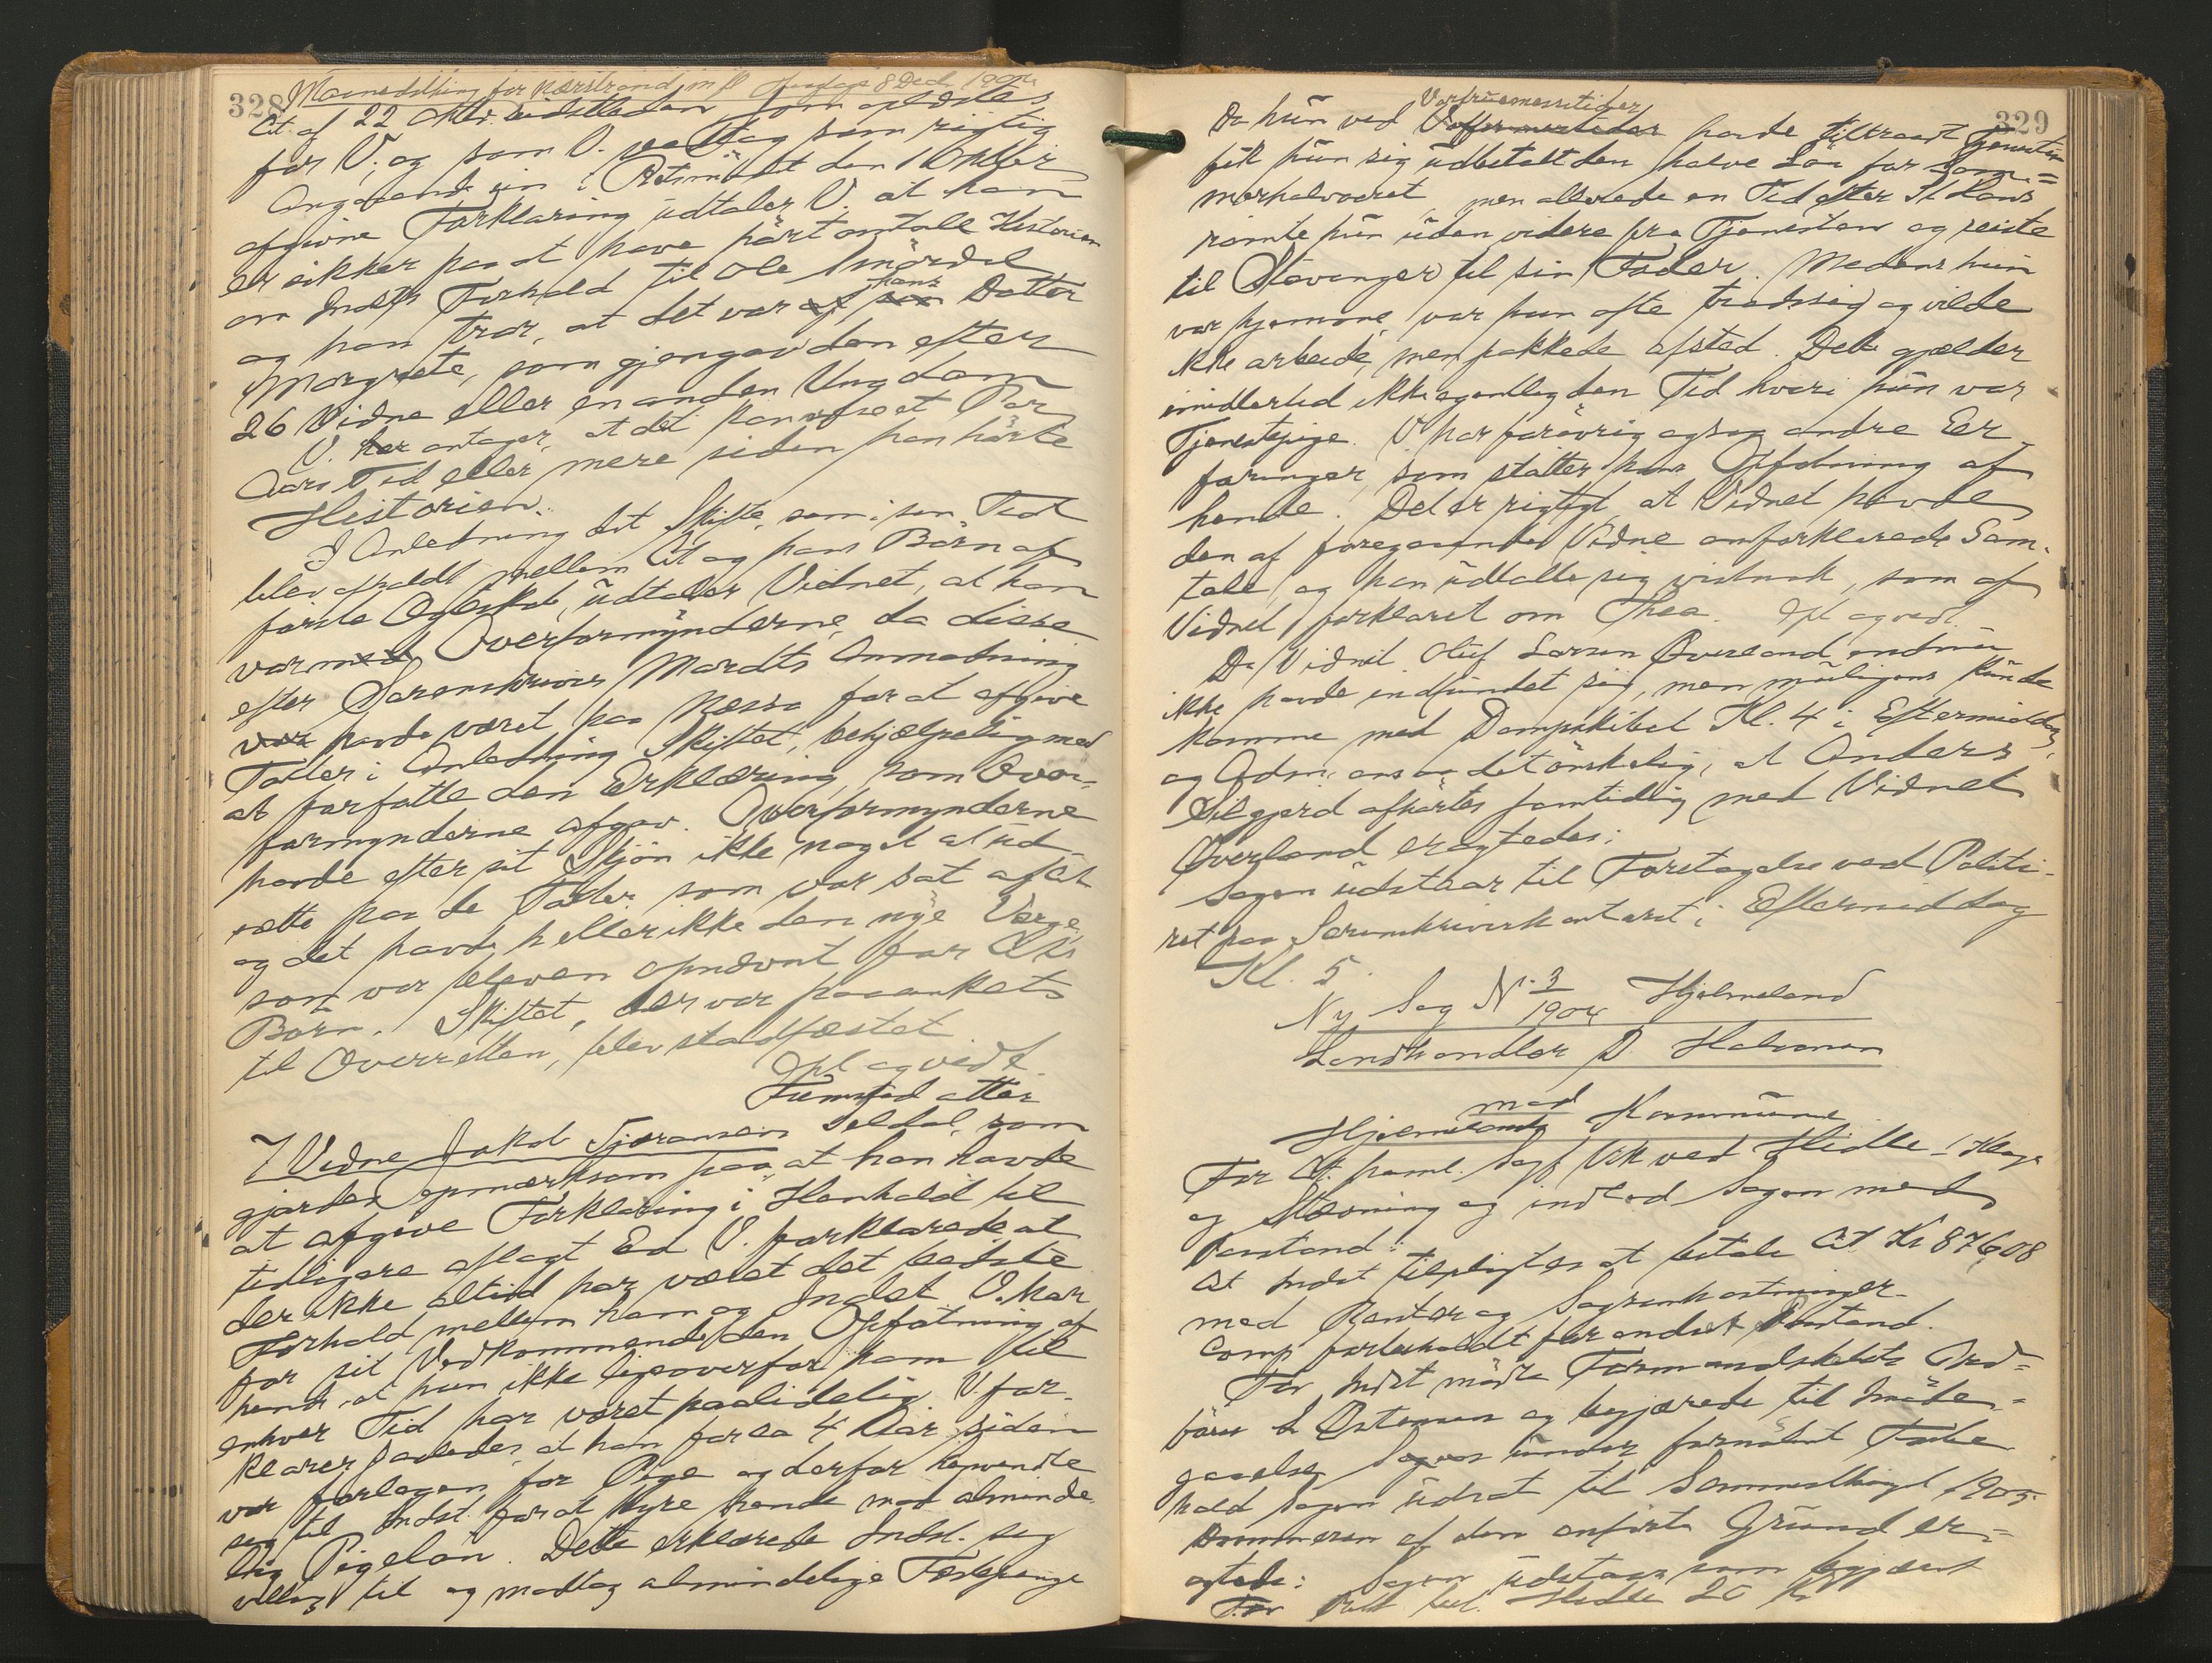 328 Maanedsthing for Nærstrand m fl Torsdag 8 Decb 1904
Cit. af 22 Mts. sidstleden som oplæstes
for V., og som V. vedtog som rigtig
Angaaende sin i Retsmødet den 1 Oktbr
afgivne Forklaring udtaler V. at han
er sikker paa at have hørt omtale Historien
om Indst's Forhold til Ole
og han tror, at det var af sin hans Datter
Margrete, som gjengav den efter
26 Vidne eller en anden Ungdom
V. her antager, at det kan være et Par
Aars Tid eller mere siden han hørte
Historien.
I Anledning det Skifte, som i sin Tid
blev afholdt mellem Cit og hans Børn af
første Ægteskab, udtaler Vidnet, at han
var med Overformynderne, da disse
efter Sorenskriver Mordts Anmodning
var havde været paa Næssa for at afgive
Takster i Anledning Skiftet, behjælpelig med
at forfatte den Erklæring, som Over-
formynderne afgav. Overformynderne
havde efter sit Skjøn ikke noget at ud-
sætte paa de Takster som var sat af Cit
og det havde heller ikke den nye Verge,
som var bleven opnævnt for Cits
Børn. Skiftet, der var paaanket
til Overretten, blev stadfæstet
Opl og vedt.
Fremstod atter
7 Vidne Jakob Tjøransen Seldal, som
gjordes opmærksom paa, at han havde
at afgive Forklaring i Henhold til
tidligere aflagt Ed V. forklarede, at
der ikke altid har været det bedste
Forhold mellem ham og Indst. V. har
for sit Vedkommende den Opfatning af
hende, at hun ikke ligeoverfor ham til
enhver Tid har været paalidelig V. for-
klarer saaledes, at han for ca 4 Aar siden
var forlegen for Pige og derfor henvendte
sig til Indst. for at hyre hende mod alminde-
lig Pigeløn. Dette erklærede Indst. sig
villig til og modtog almindelige Festepenge
329
Vorfruemessetider
Da hun ved havde tiltraadt Tjenesten
fik hun sig udbetalt den halve Løn for Som-
merhalvaaret, men allerede en Tid efter St Hans
rømte hun uden videre fra Tjenesten og reiste
til Stavanger til sin Fader. Medens hun
var hjemme, var hun ofte trodsig og vilde
ikke arbeide, men pakkede afsted. Dette gjælder
imidlertid ikke egentlig den Tid hvori hun var
Tjenestepige. V. har forøvrig ogsaa andre Er-
faringer, som støtter hans Opfatning af
hende. Det er rigtigt, at Vidnet havde
den af foregaaende Vidne omforklarede Sam-
tale, og han udtalte sig vistnok, som af
Vidnet forklaret om Thea. Opl og vedt.
Da Vidnet Oluf Larsen Øverland endnu
ikke havde indfundet sig, men muligens kunde
komme med Dampskibet Kl. 4 i Eftermiddag,
og Adm. ansaa det ønskelig, at Anders
Lilgjerd afhørtes samtidig med Vidnet
Øverland eragtedes:
Sagen udstaar til Foretagelse ved Politi-
ret paa Sorenskriverkontoret i Eftermiddag
Kl. 5.
Ny Sag N. 3/1904 Hjelmeland
Landhandler D. Halvorsen
mod
Hjelmelands Kommune
For Cit. freml. Sagf. Vik ved Hidle 1 Klage
og Stævning og indlod Sagen med
Paastand:
At Indst tilpligtes at betale Cit Kr 876,08
med Renter og Sagsomkostninger.
Comp forbeholdt forandret Paastand.
For Indst mødte Formandskabets Ord-
fører L Østeman og begjærede til Imøde-
gaaelse Sagen under fornødent Forbe-
hold Sagen udsat til Sommerthinget 1905.
Dommeren af den anførte Grund er-
agtede: Sagen udstaar som begjæret
For Hidle 20 Kr